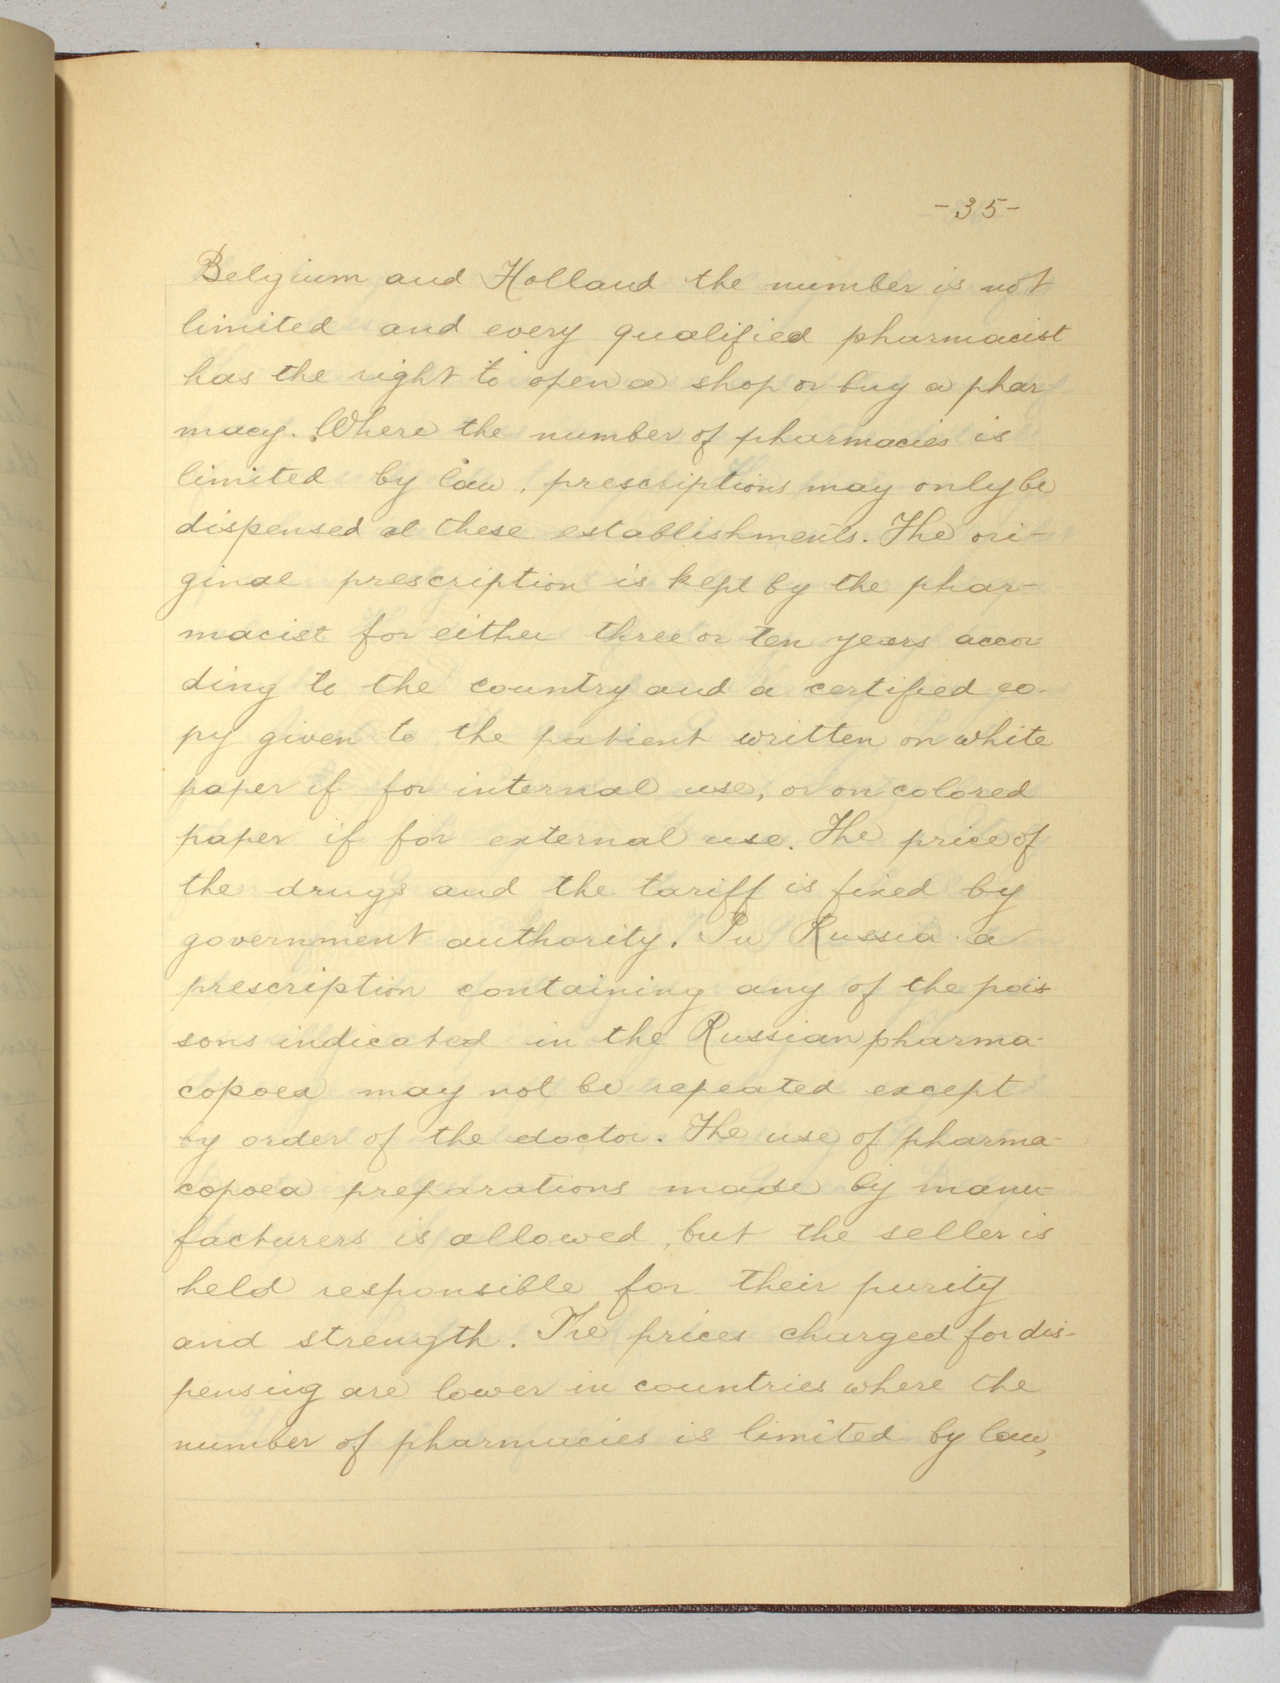 -35-
Belgium and Holland the number is not
limited and every qualified pharmacist
has the right to open a shop or buy a phar-
macy. Where the number of pharmacies is
limited by law, prescriptions may only be
dispensed at these establishments. The ori-
ginal prescription is kept by the phar-
macist for either three or ten years accor
ding to the country and a certified co-
py given to the patient written on white
paper if for internal use, or on colored
paper if for external use. The price of
the drugs and the tariff is fixed by
government authority. In Russia a
prescription containing any of the poi-
sons indicated in the Russian pharma-
copoea may not be repeated except
by order of the doctor. The use of pharma-
copoea preparations made by manu-
facturers is allowed, but the seller is
held responsible for their purity
and strength. The prices charged for dis-
pensing are lower in countries where the
number of pharmacies is limited by law,